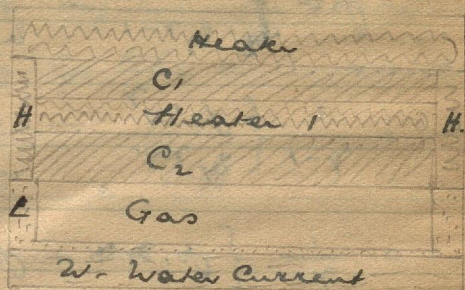 Heater
C1
H Heater 1 H.
C2
L Gas
W - Water Current